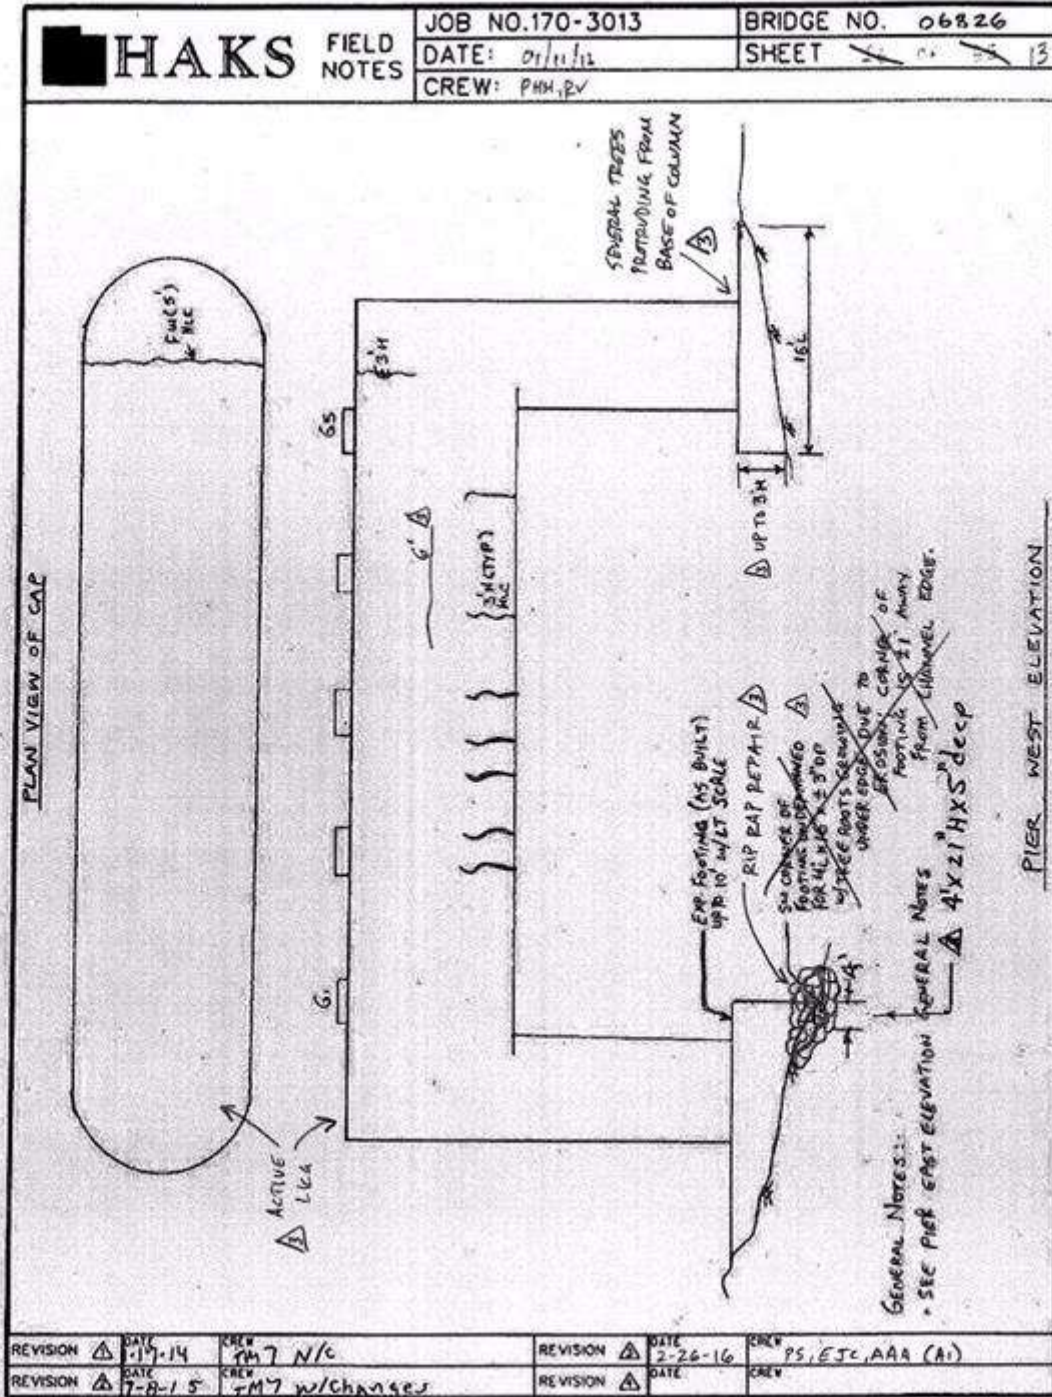 HAKS
FIELD
NOTES
JOB NO.170-3013
BRIDGE NO. 06826
DATE:
SHEET 13
CREW: PHH, RV
PLAN VIEW OF CAP
FW(5')
ACTIVE
LKG
3
G5
G1
3'H
6' 3
3'H(TYP)
SEVERAL TREES
PROTRUDING FROM
BASE OF COLUMN
3
15'L
3 UP TO 3'H
EXP. FOOTING (AS BUILT)
UP TO 10' W/LT SCALE
RIP RAP REPAIR 3
SW CORNER OF
FOOTING UNDERMINED 3
W/TREE ROOTS GROWING
UNDER EDGE DUE TO
EROSION. CORNER OF
FOOTING IS ±1' AWAY
FROM CHANNEL EDGE.
4'
4'X21"HX5"deep
GENERAL NOTES:
• SEE PIER EAST ELEVATION GENERAL NOTES
PIER WEST ELEVATION
REVISION 1 DATE 1-17-14 CREW TM7 N/C
REVISION DATE 2-26-16 CREW PS, EJC, AAA (A1)
REVISION DATE 7-8-15 CREW TM7 w/Changes
REVISION DATE CREW